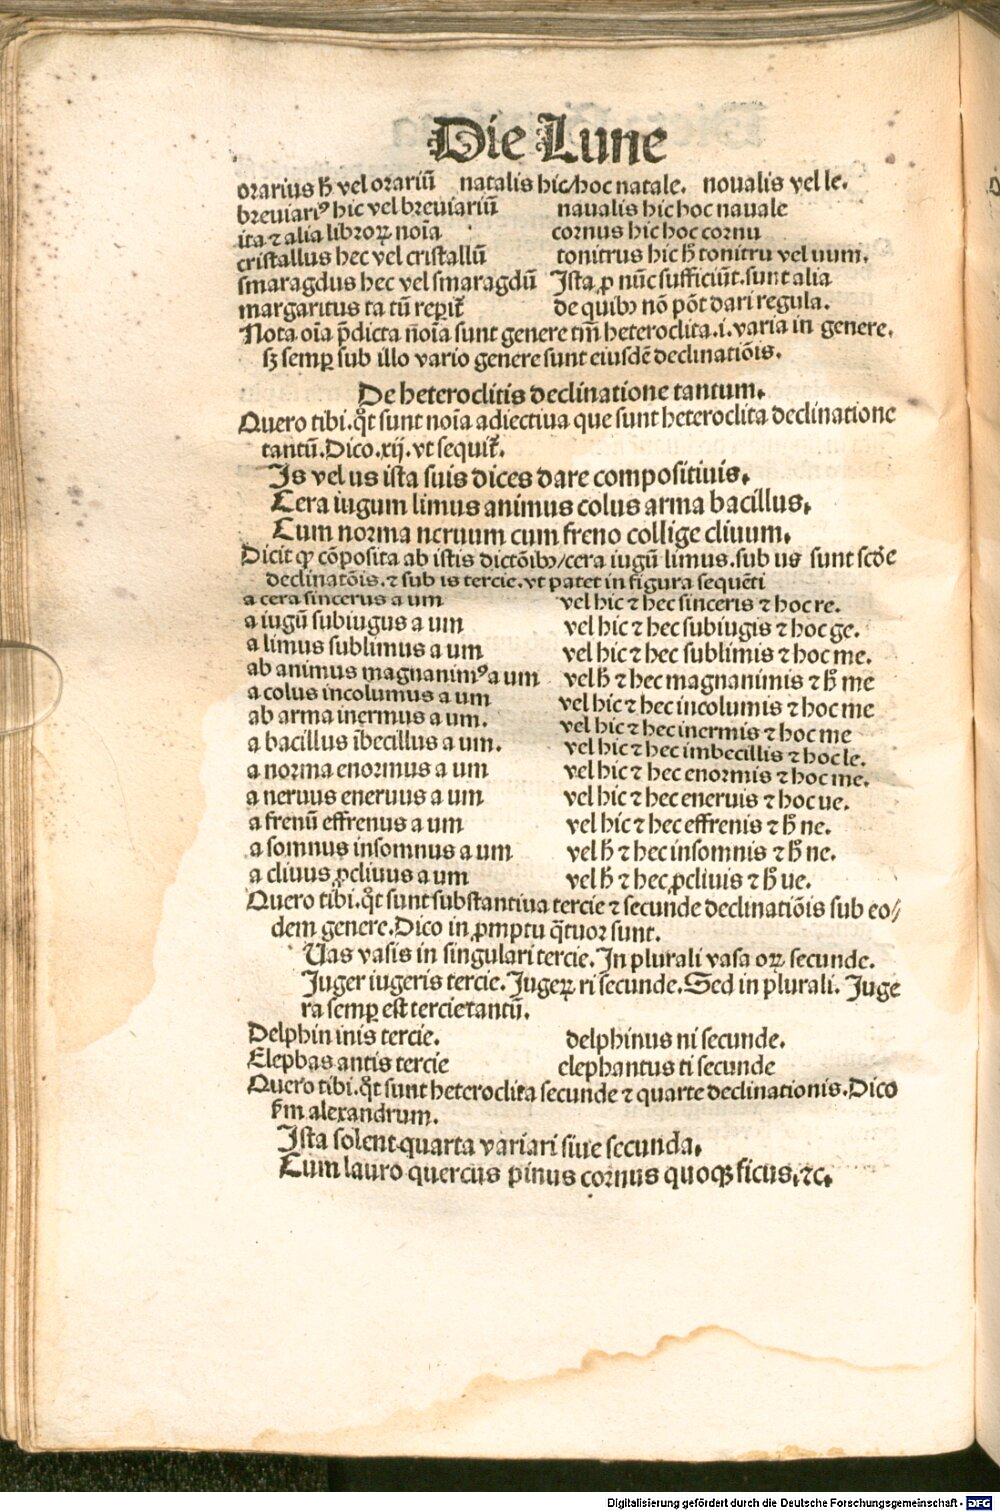 Die Lune
orarius h̄ vel orariū natalis hic/hoc natale. noualis vel le.
breuiariꝰ hic vel breuiariū naualis hic hoc nauale
ita ⁊ alia libroꝝ noīa cornus hic hoc cornu
cristallus hec vel cristallū tonitrus hic h̄ tonitru vel uum.
smaragdus hec vel smaragdū Ista ꝓ nūc sufficiūt. sunt alia
margaritus ta tū reperit̃ de quibꝫ nō pōt dari regula.
Nota oīa p̄dicta noīa sunt genere tm̄ heteroclita .i. varia in genere.
sꝫ semꝑ sub illo vario genere sunt eiusdē declinatiōis.
De heteroclitis declinatione tantum.
Quero tibi. q̄t sunt noīa adiectiua que sunt heteroclita declinatione
tantū. Dico .xij. vt sequit̃.
Is vel us ista suis dices dare compositiuis.
Cera iugum limus animus colus arma bacillus.
Cum norma neruum cum freno collige cliuum.
Dicit ꝙ cōposita ab istis dictōibꝫ/cera iugū limus. sub us sunt scd̄e
declinatōis. ⁊ sub is tercie. vt patet in figura sequēti
a cera sincerus a um vel hic ⁊ hec sinceris ⁊ hoc re.
a iugū subiugus a um vel hic ⁊ hec subiugis ⁊ hoc ge.
a limus sublimus a um vel hic ⁊ hec sublimis ⁊ hoc me.
ab animus magnanimꝰ a um vel h̄ ⁊ hec magnanimis ⁊ h̄ me
a colus incolumus a um vel hic ⁊ hec incolumis ⁊ hoc me
ab arma inermus a um. vel hic ⁊ hec inermis ⁊ hoc me
a bacillus ībecillus a um. vel hic ⁊ hec imbecillis ⁊ hoc le.
a norma enormus a um vel hic ⁊ hec enormis ⁊ hoc me.
a neruus eneruus a um vel hic ⁊ hec eneruis ⁊ hoc ue.
a frenū effrenus a um vel hic ⁊ hec effrenis ⁊ h̄ ne.
a somnus insomnus a um vel h̄ ⁊ hec insomnis ⁊ h̄ ne.
a cliuus ꝓcliuus a um vel h̄ ⁊ hec ꝓcliuis ⁊ h̄ ue.
Quero tibi. q̄t sunt substantiua tercie ⁊ secunde declinatiōis sub eo/
dem genere. Dico in ꝓmptu q̄tuor sunt.
Uas vasis in singulari tercie. In plurali vasa oꝝ secunde.
Iuger iugeris tercie. Iugeꝝ ri secunde. Sed in plurali. Iuge
ra semꝑ est tercie tantū.
Delphin inis tercie. delphinus ni secunde.
Elephas antis tercie elephantus ti secunde
Quero tibi. q̄t sunt heteroclita secunde ⁊ quarte declinationis. Dico
ẜm alexandrum.
Ista solent quarta variari siue secunda.
Cum lauro quercus pinus cornus quoqꝫ ficus. ⁊c.
Digitalisierung gefördert durch die Deutsche Forschungsgemeinschaft - DFG